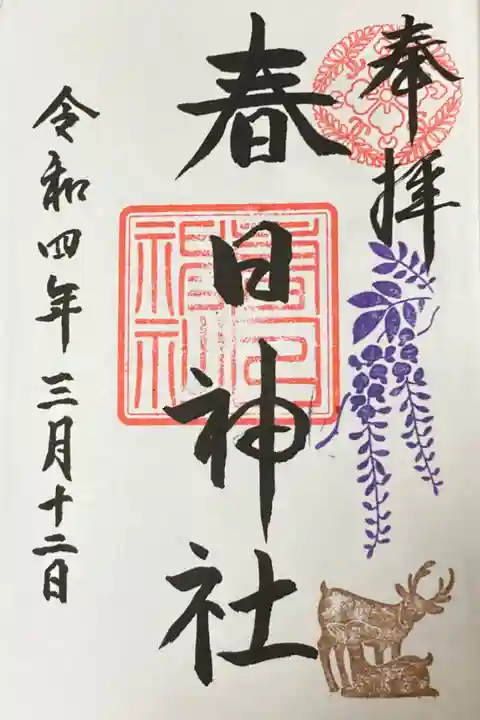 奉拝
春日神社
春日神社
令和四年三月十二日